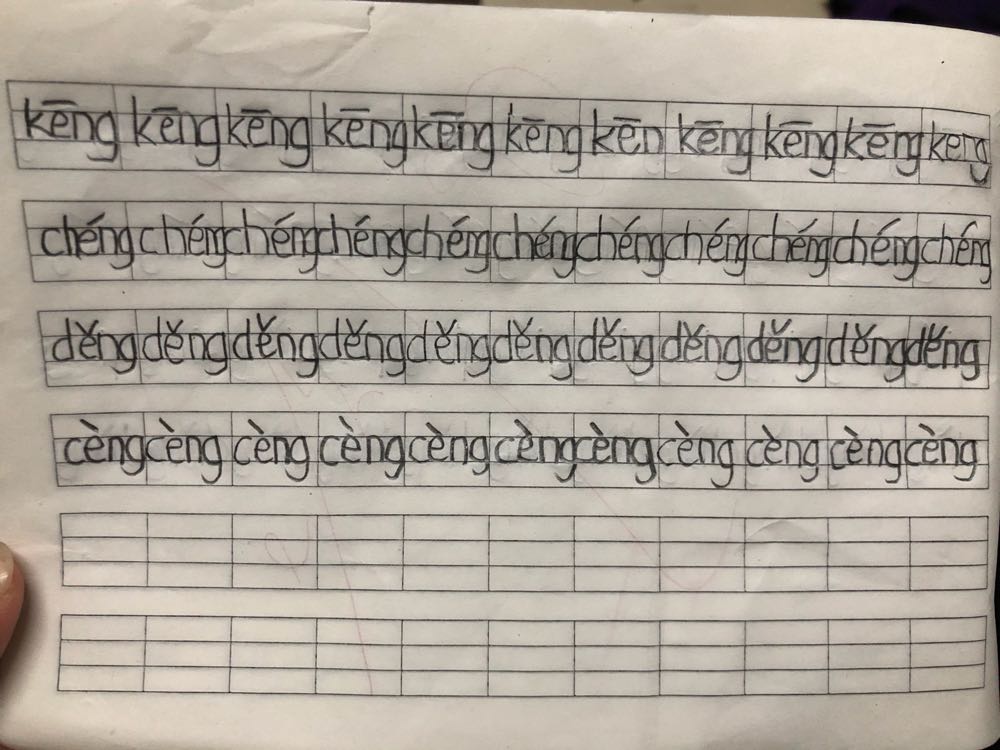 kēng kēng kēng kēng kēng kēng kēn kēng kēng kēng keng
chéng chéng chéng chéng chéng chéng chéng chéng chéng chéng chéng
děng děng děng děng děng děng děng děng děng děng děng
cèng cèng cèng cèng cèng cèng cèng cèng cèng cèng cèng